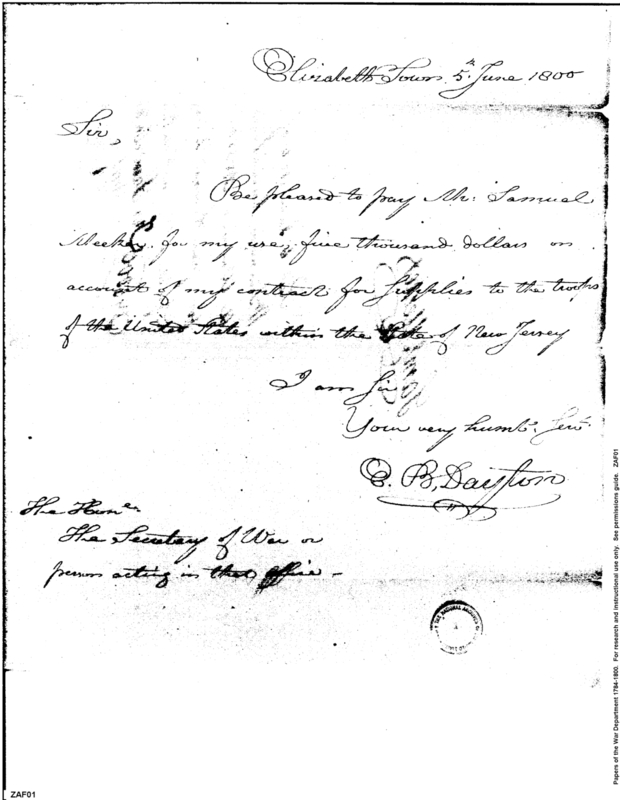 Elizabeth Town 5th June 1800
Sir,
Be pleased to pay Mr. Samuel
Meeker for my use, five thousand dollars on
account of my contract for Supplies to the troops
of the United States within the State of New Jersey
I am Sir
Your very humt. Servt.
E. B. Dayton
The Honle.
The Secretary of War or
person acting in that office -
Papers of the War Department 1784-1800. For research and instructional use only. See permissions guide. ZAF01
ZAF01